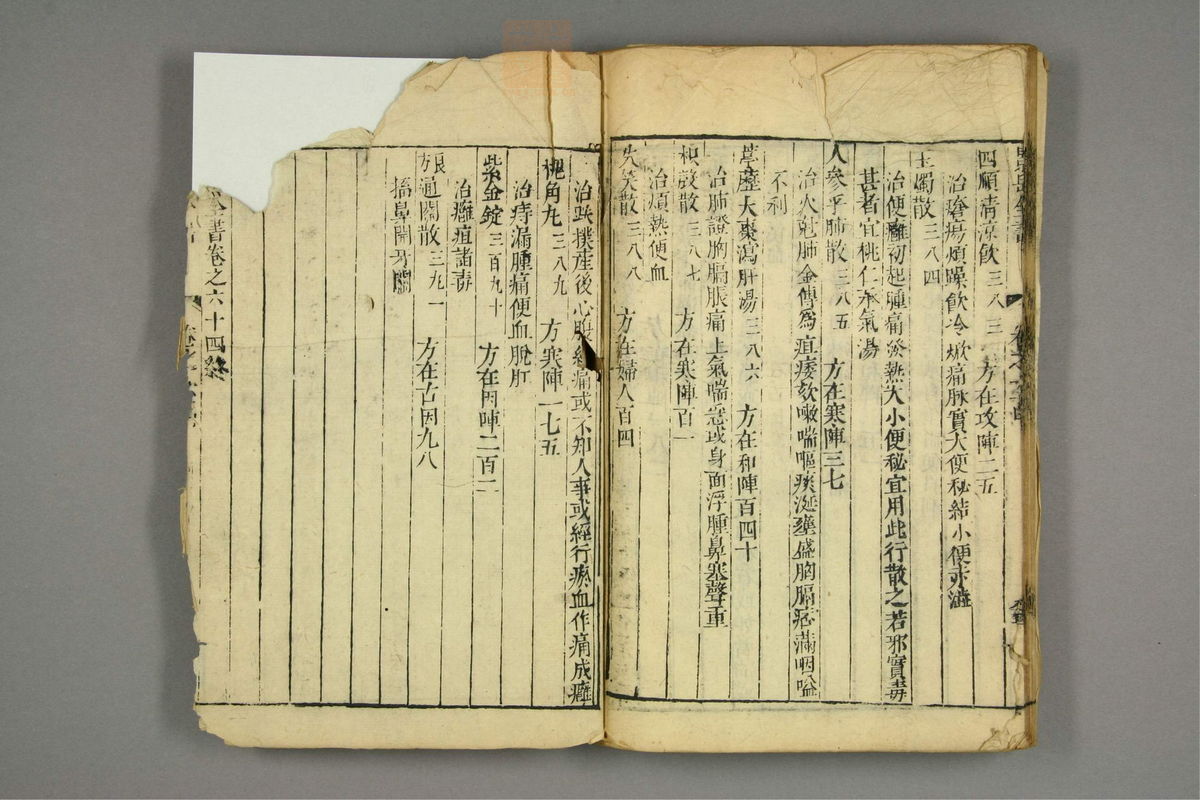 四順清凉飲三八三　方在攻陣二五
治瘡瘍煩躁飲冷㷔痛脉實大便秘結小便赤澁
玉燭散三八四
治便癰初起腫痛發熱大小便秘宜用此行散之若邪實毒
甚者宜桃仁承氣湯
人參平肺散三八五　方在寒陣三七
治火尅肺金傳為疽痿欬嗽喘嘔痰涎壅盛胸膈痞滿咽嗌
不利
葶藶大棗瀉肝湯三八六　方在和陣百四十
治肺證胸膈脹痛上氣喘急或身面浮腫鼻塞聲重
枳殼散三八七　方在寒陣百一
治煩熱便血
失笑散三八八　方在婦人百四
治跌撲産後心腹絞痛或不知人事或經行瘀血作痛成癰
槐角丸三八九　方寒陣一七五
治痔漏腫痛便血脫肛
紫金錠三百九十　方在因陣二百二
治癰疽諸毒
良方通關散三九一　方在古因九八
搐鼻開牙關
全書卷之六十四終